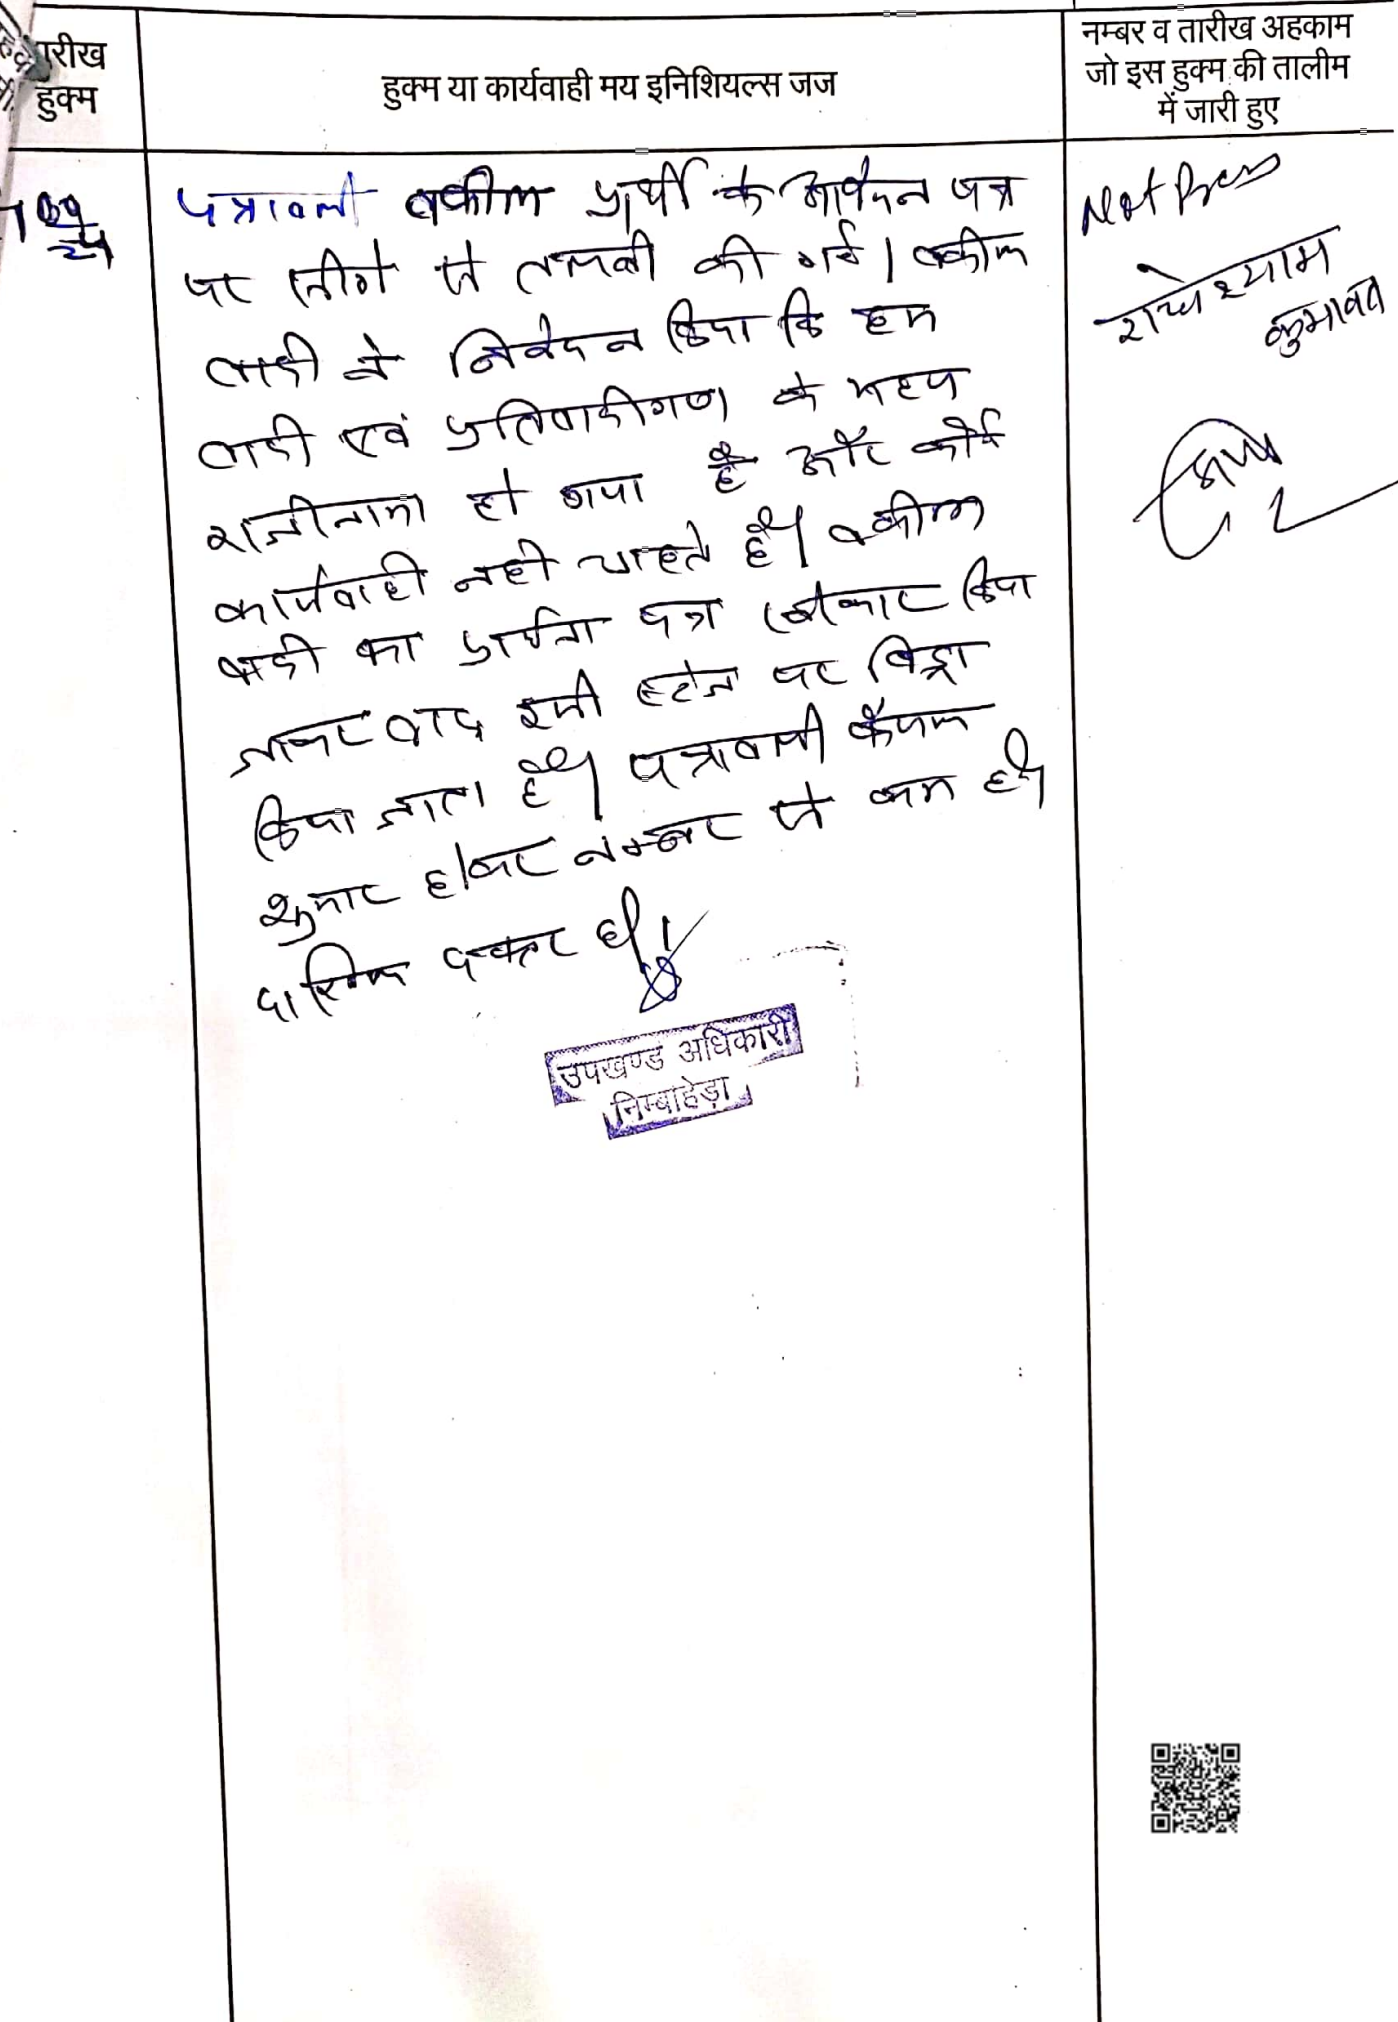 तारीख
हुक्म
हुक्म या कार्यवाही मय इनिशियल्स जज
नम्बर व तारीख अहकाम
जो इस हुक्म की तालीम
में जारी हुए
पत्रावली वकील प्रार्थी के आवेदन पत्र
पर सीगे से तलबी की गई। वकील
वादी ने निवेदन किया कि हम
वादी एवं प्रतिवादीगण के मध्य
राजीनामा हो गया है और कोई
कार्यवाही नही चाहते है। वकील
वादी का प्रार्थना पत्र स्वीकार किया
जाकर वाद इसी स्टेज पर विड्रा
किया जाता है। पत्रावली फैसल
शुमार होकर नम्बर से कम हो
दाखिल दफ्तर हो।
उपखण्ड अधिकारी
निम्बाहेड़ा
Not Press
राधेश्याम
कुमावत